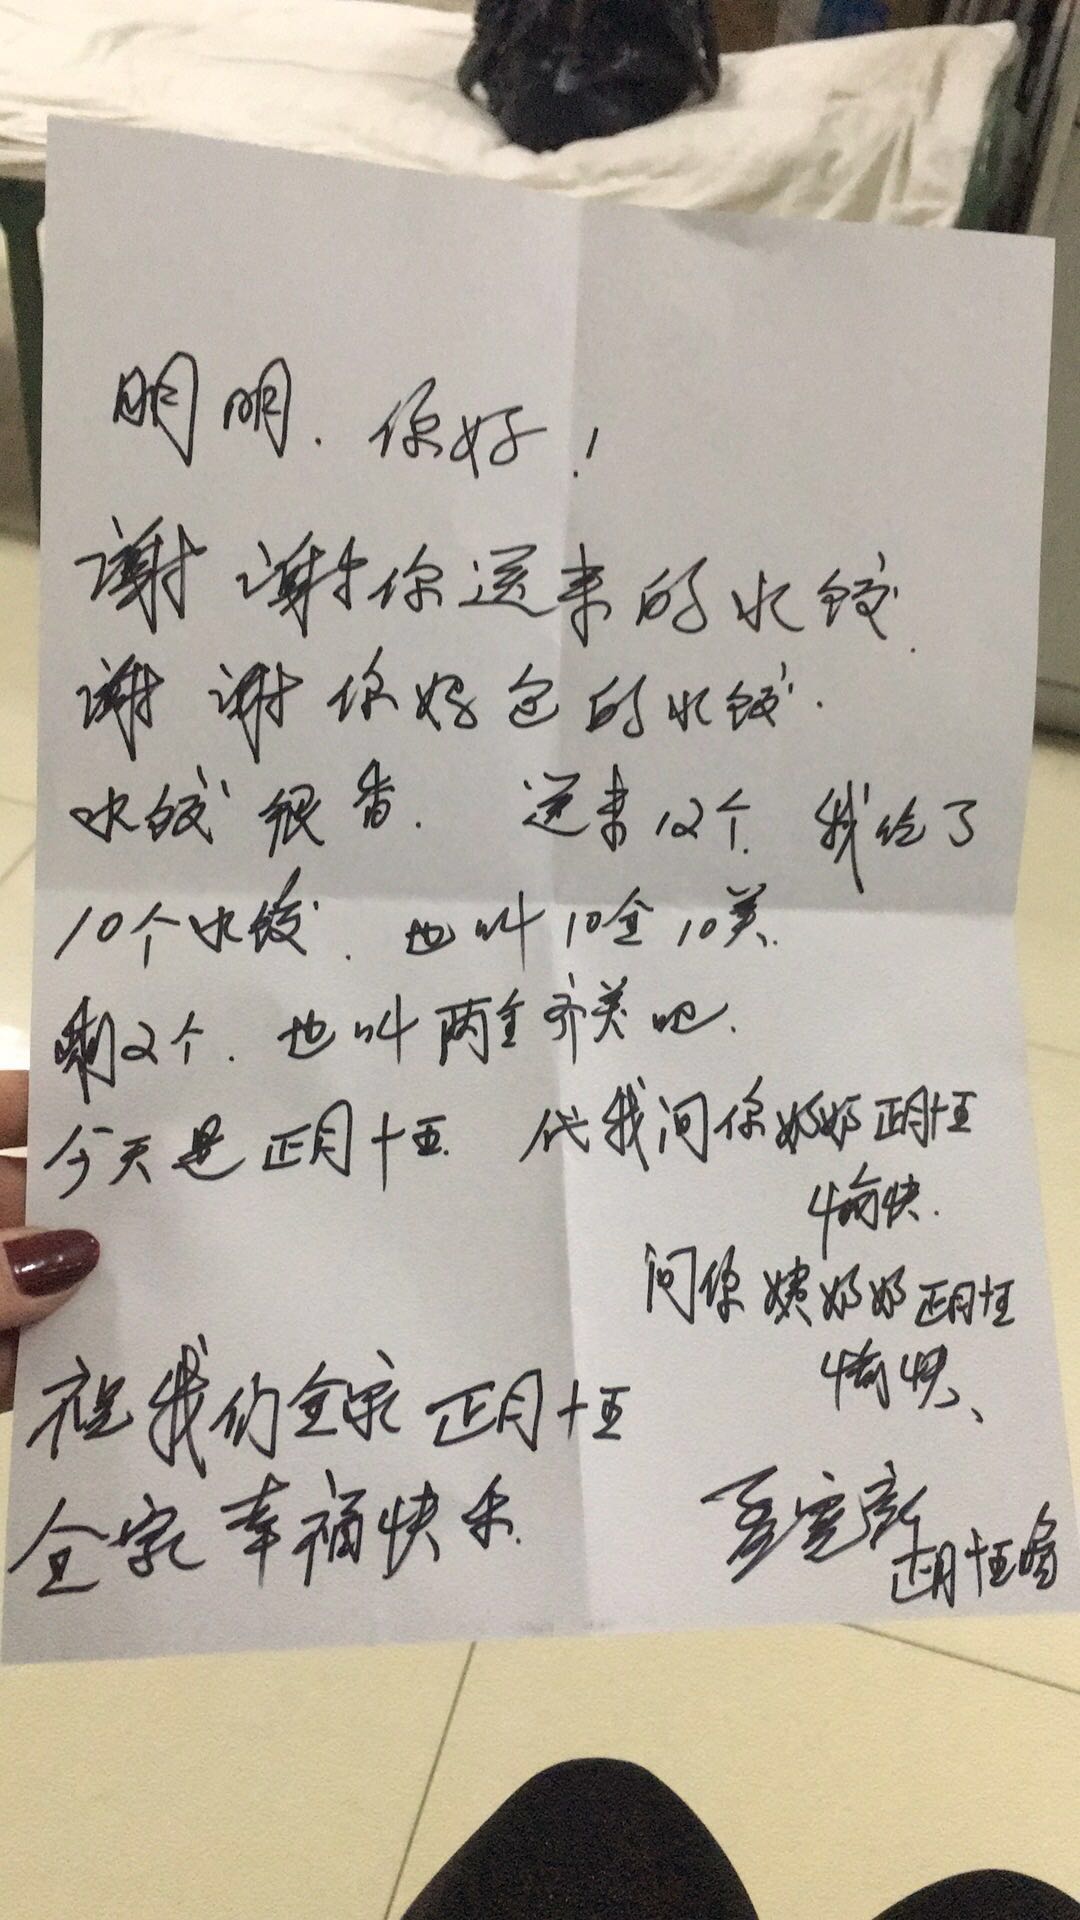 明明、你好！
谢谢你送来的水饺.
谢谢你妈包的水饺.
水饺很香. 送来12个. 我给了
10个水饺. 也叫10全10美.
剩2个. 也叫两全齐美吧.
今天是正月十五. 代我问你奶奶正月十五
愉快.
问你姨奶奶正月十五
愉快、
祝我们全家正月十五
全家幸福快乐.
正月十五